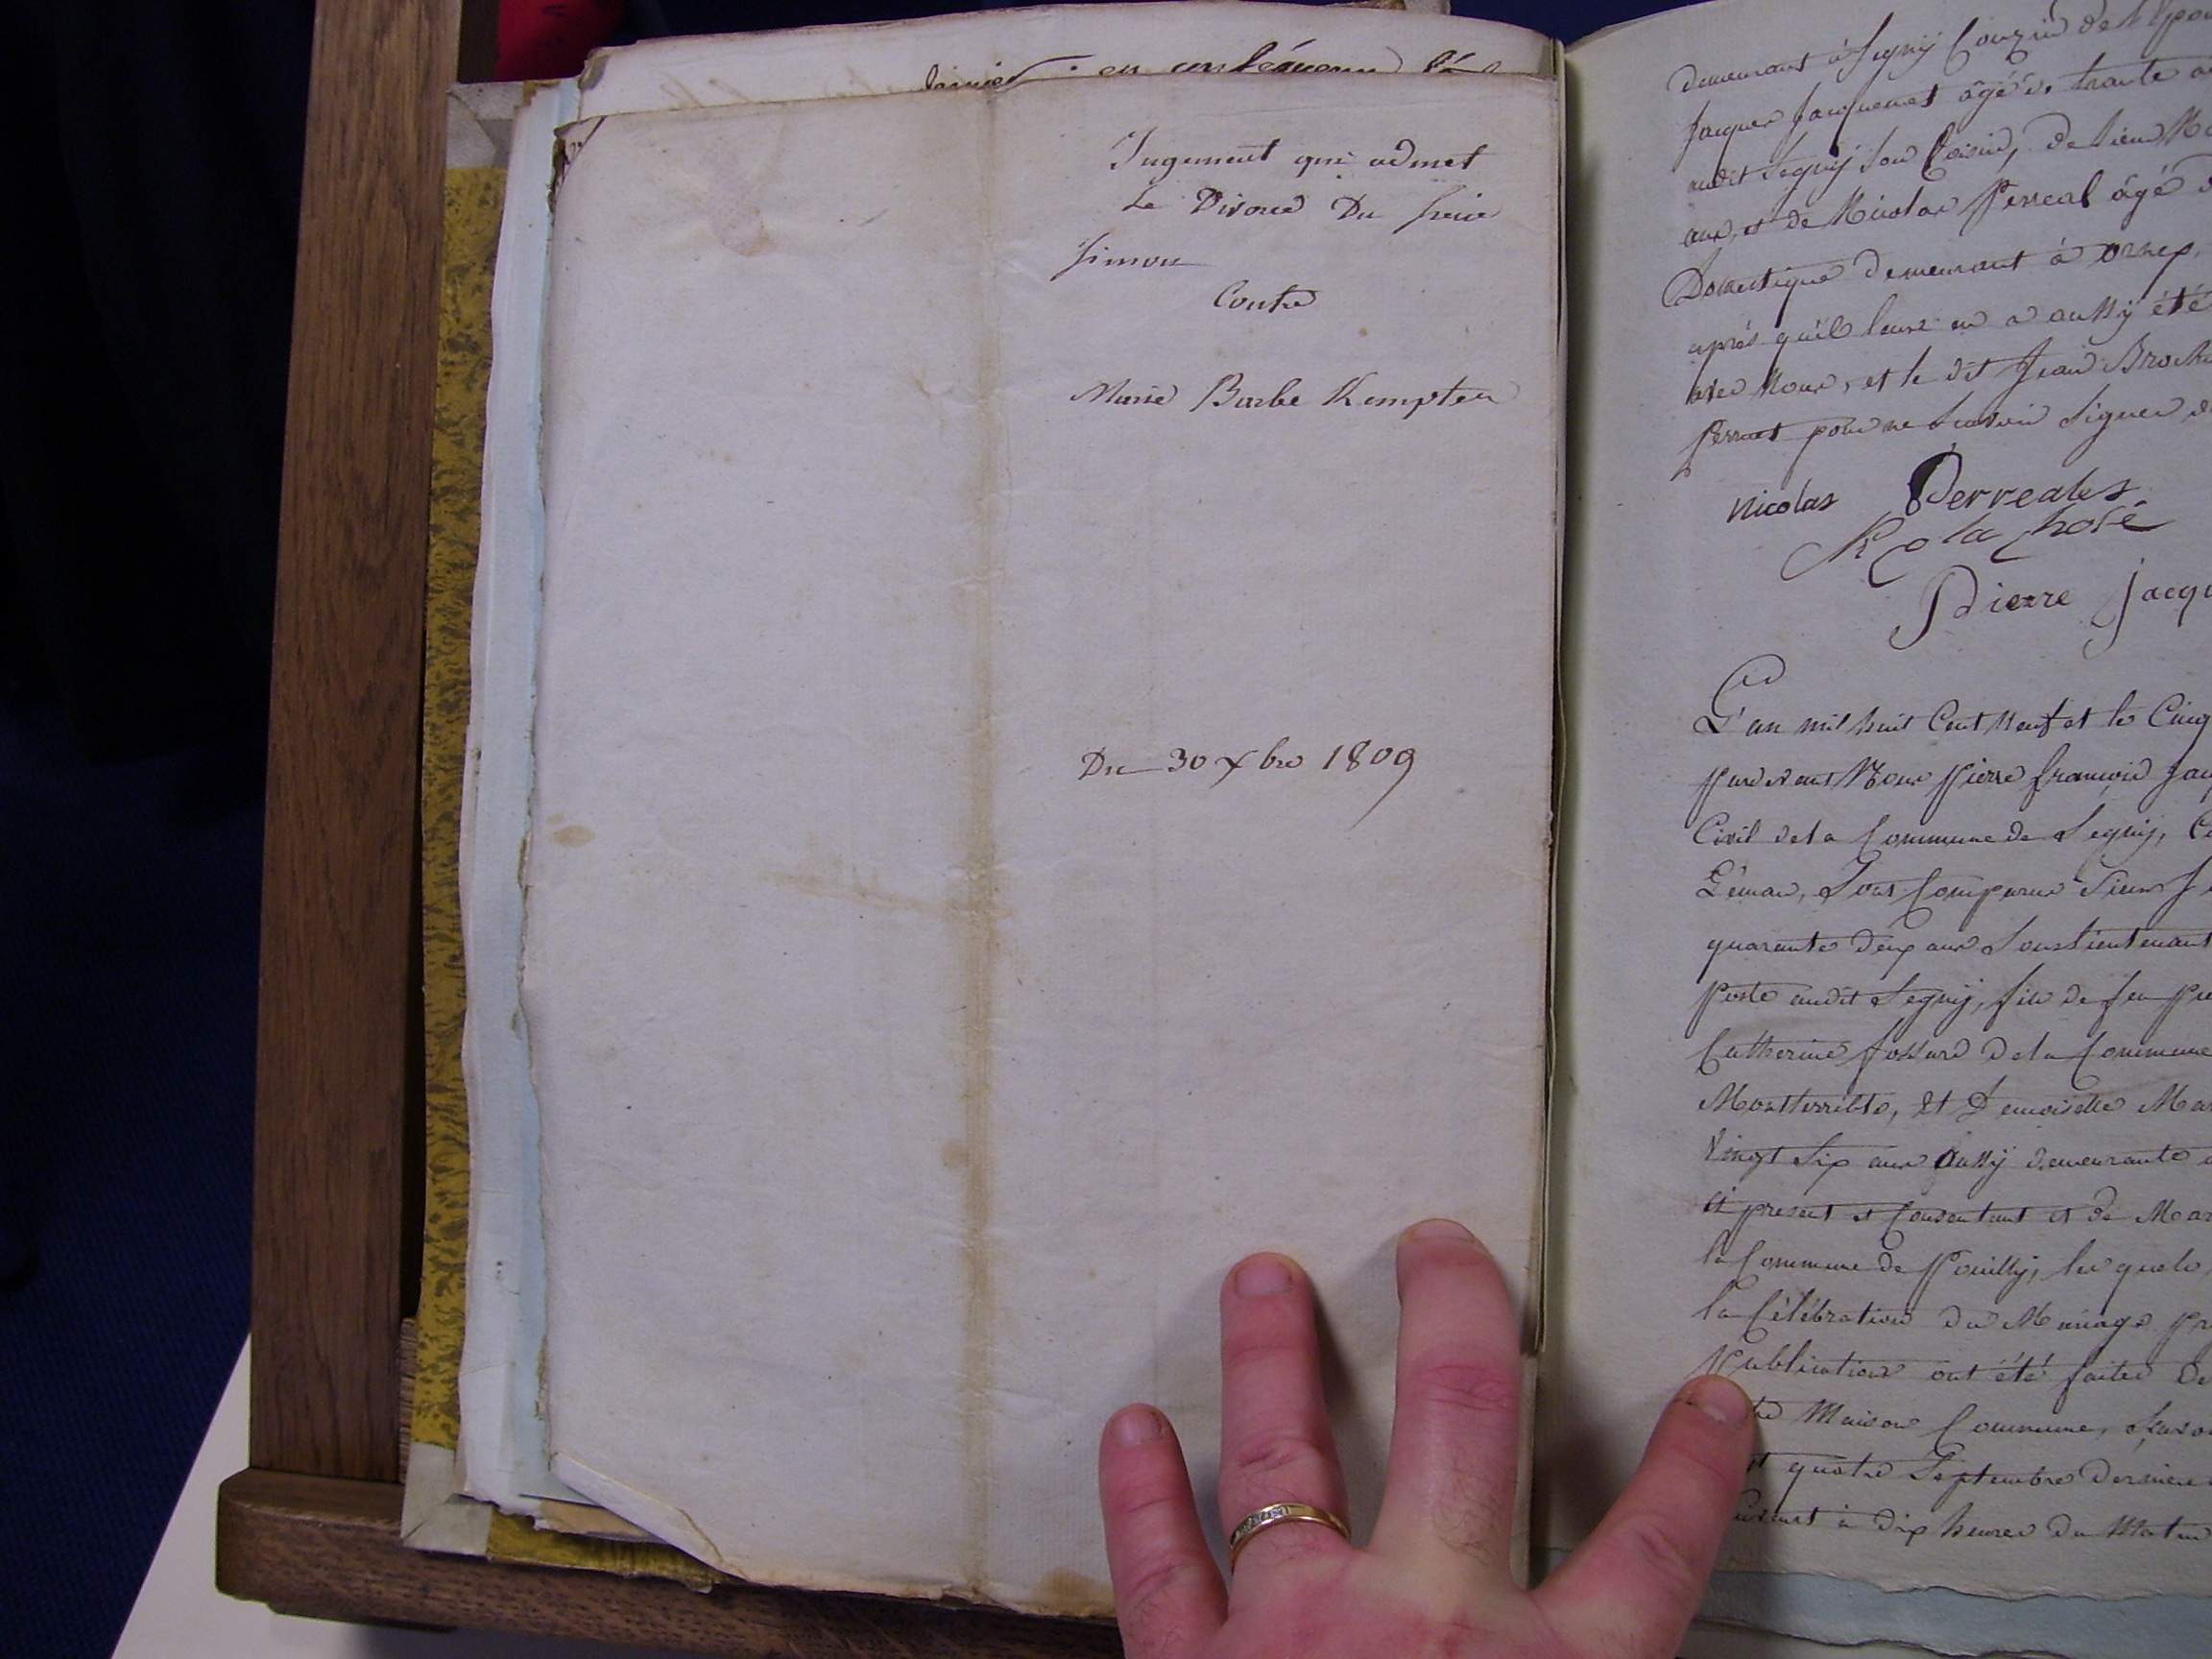 dernier . en conséquence
Jugement qui admet
Le Divorce Du Sieur
Simon
Contre
Marie Barbe Kempter
Du 30 Xbre 1809
demeurant à Segny Cousin de l'Epou
Jacques Jacquemet âgé de trante
audit Segny son Voisin, de Sieur
ans, et de Nicolas Perreal âgé d
Domestique demeurant à Ornex,
après qu'il leurs en a aussy été
avec Nous, et le dit Jean
pour ne Scavoir Signer
Nicolas Perreales
Pierre Jacqu
L'an mil huit Cent Neuf et le Cinq
Pardevant Nous Pierre François Jacq
Civil de la Commune de Segny,
Léman, Sont Comparus Sieur
quarante deux ans Souslieutenant
Poste audit Segny, fils de feu
Catherine Fossard de la Commune
Montterrible, Et Demoiselle Mar
Vingt Six ans Aussy demeurante
ci present et Consentant et de Mar
la Commune de Pouilly, les quels
la Célébration du Mariage
Publications ont été faites
Maison Commune, Scavo
quatre Septembre dernier
à dix heures du Matin